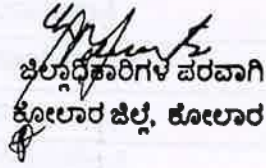 ಜಿಲ್ಲಾಧಿಕಾರಿಗಳ ಪರವಾಗಿ
ಕೋಲಾರ ಜಿಲ್ಲೆ, ಕೋಲಾರ